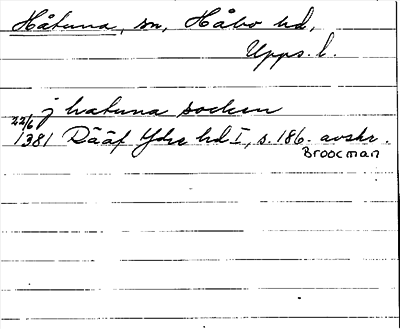 Håtuna, sn, Håbo hd,
Upps. l.
j hatuna socken
22/6 1381 Rääf Ydre hd I, s. 186. avskr.
Broocman